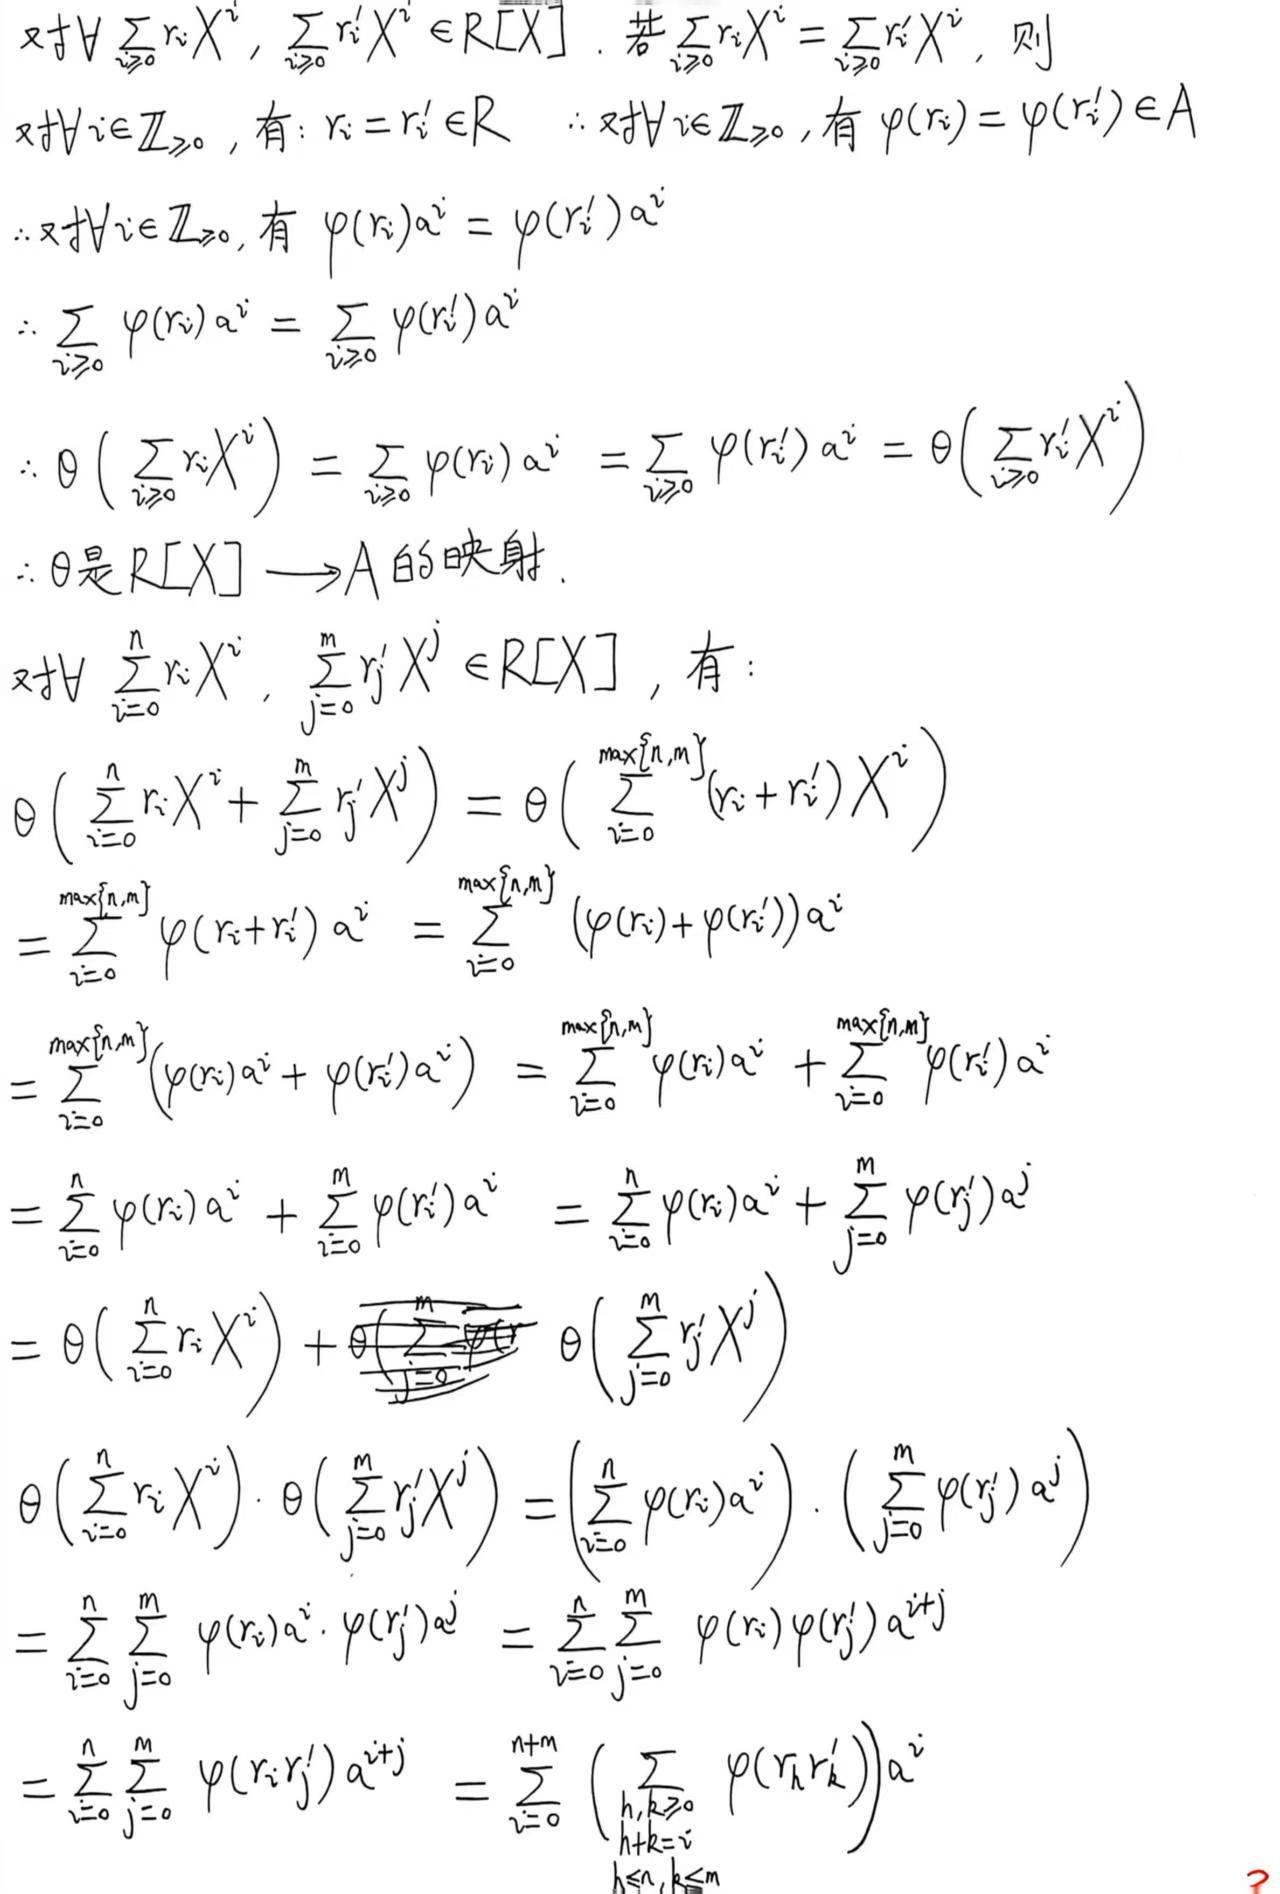 对∀ $\sum_{i≥0} r_i X^i$, $\sum_{i≥0} r_i' X^i ∈ R[X]$. 若 $\sum_{i≥0} r_i X^i = \sum_{i≥0} r_i' X^i$, 则
对∀ $i∈\mathbb{Z}_{≥0}$, 有: $r_i = r_i' ∈ R$ ∴对∀ $i∈\mathbb{Z}_{≥0}$, 有 $φ(r_i) = φ(r_i') ∈ A$
∴对∀ $i∈\mathbb{Z}_{≥0}$, 有 $φ(r_i)a^i = φ(r_i')a^i$
∴ $\sum_{i≥0} φ(r_i)a^i = \sum_{i≥0} φ(r_i')a^i$
∴ $θ\left(\sum_{i≥0} r_i X^i\right) = \sum_{i≥0} φ(r_i)a^i = \sum_{i≥0} φ(r_i')a^i = θ\left(\sum_{i≥0} r_i' X^i\right)$
∴ θ是 $R[X] ⟶ A$ 的映射.
对∀ $\sum_{i=0}^{n} r_i X^i$, $\sum_{j=0}^{m} r_j' X^j ∈ R[X]$, 有:
$θ\left(\sum_{i=0}^{n} r_i X^i + \sum_{j=0}^{m} r_j' X^j\right) = θ\left(\sum_{i=0}^{max\{n,m\}} (r_i + r_i') X^i\right)$
$= \sum_{i=0}^{max\{n,m\}} φ(r_i + r_i')a^i = \sum_{i=0}^{max\{n,m\}} (φ(r_i) + φ(r_i'))a^i$
$= \sum_{i=0}^{max\{n,m\}} \left(φ(r_i)a^i + φ(r_i')a^i\right) = \sum_{i=0}^{max\{n,m\}} φ(r_i)a^i + \sum_{i=0}^{max\{n,m\}} φ(r_i')a^i$
$= \sum_{i=0}^{n} φ(r_i)a^i + \sum_{i=0}^{m} φ(r_i')a^i = \sum_{i=0}^{n} φ(r_i)a^i + \sum_{j=0}^{m} φ(r_j')a^j$
$= θ\left(\sum_{i=0}^{n} r_i X^i\right) + θ\left(\sum_{j=0}^{m} r_j' X^j\right)$
$θ\left(\sum_{i=0}^{n} r_i X^i\right) · θ\left(\sum_{j=0}^{m} r_j' X^j\right) = \left(\sum_{i=0}^{n} φ(r_i)a^i\right) · \left(\sum_{j=0}^{m} φ(r_j')a^j\right)$
$= \sum_{i=0}^{n} \sum_{j=0}^{m} φ(r_i)a^i · φ(r_j')a^j = \sum_{i=0}^{n} \sum_{j=0}^{m} φ(r_i)φ(r_j')a^{i+j}$
$= \sum_{i=0}^{n} \sum_{j=0}^{m} φ(r_i r_j')a^{i+j} = \sum_{i=0}^{n+m} \left(\sum_{h,k≥0, h+k=i, h≤n, k≤m} φ(r_h r_k')\right)a^i$